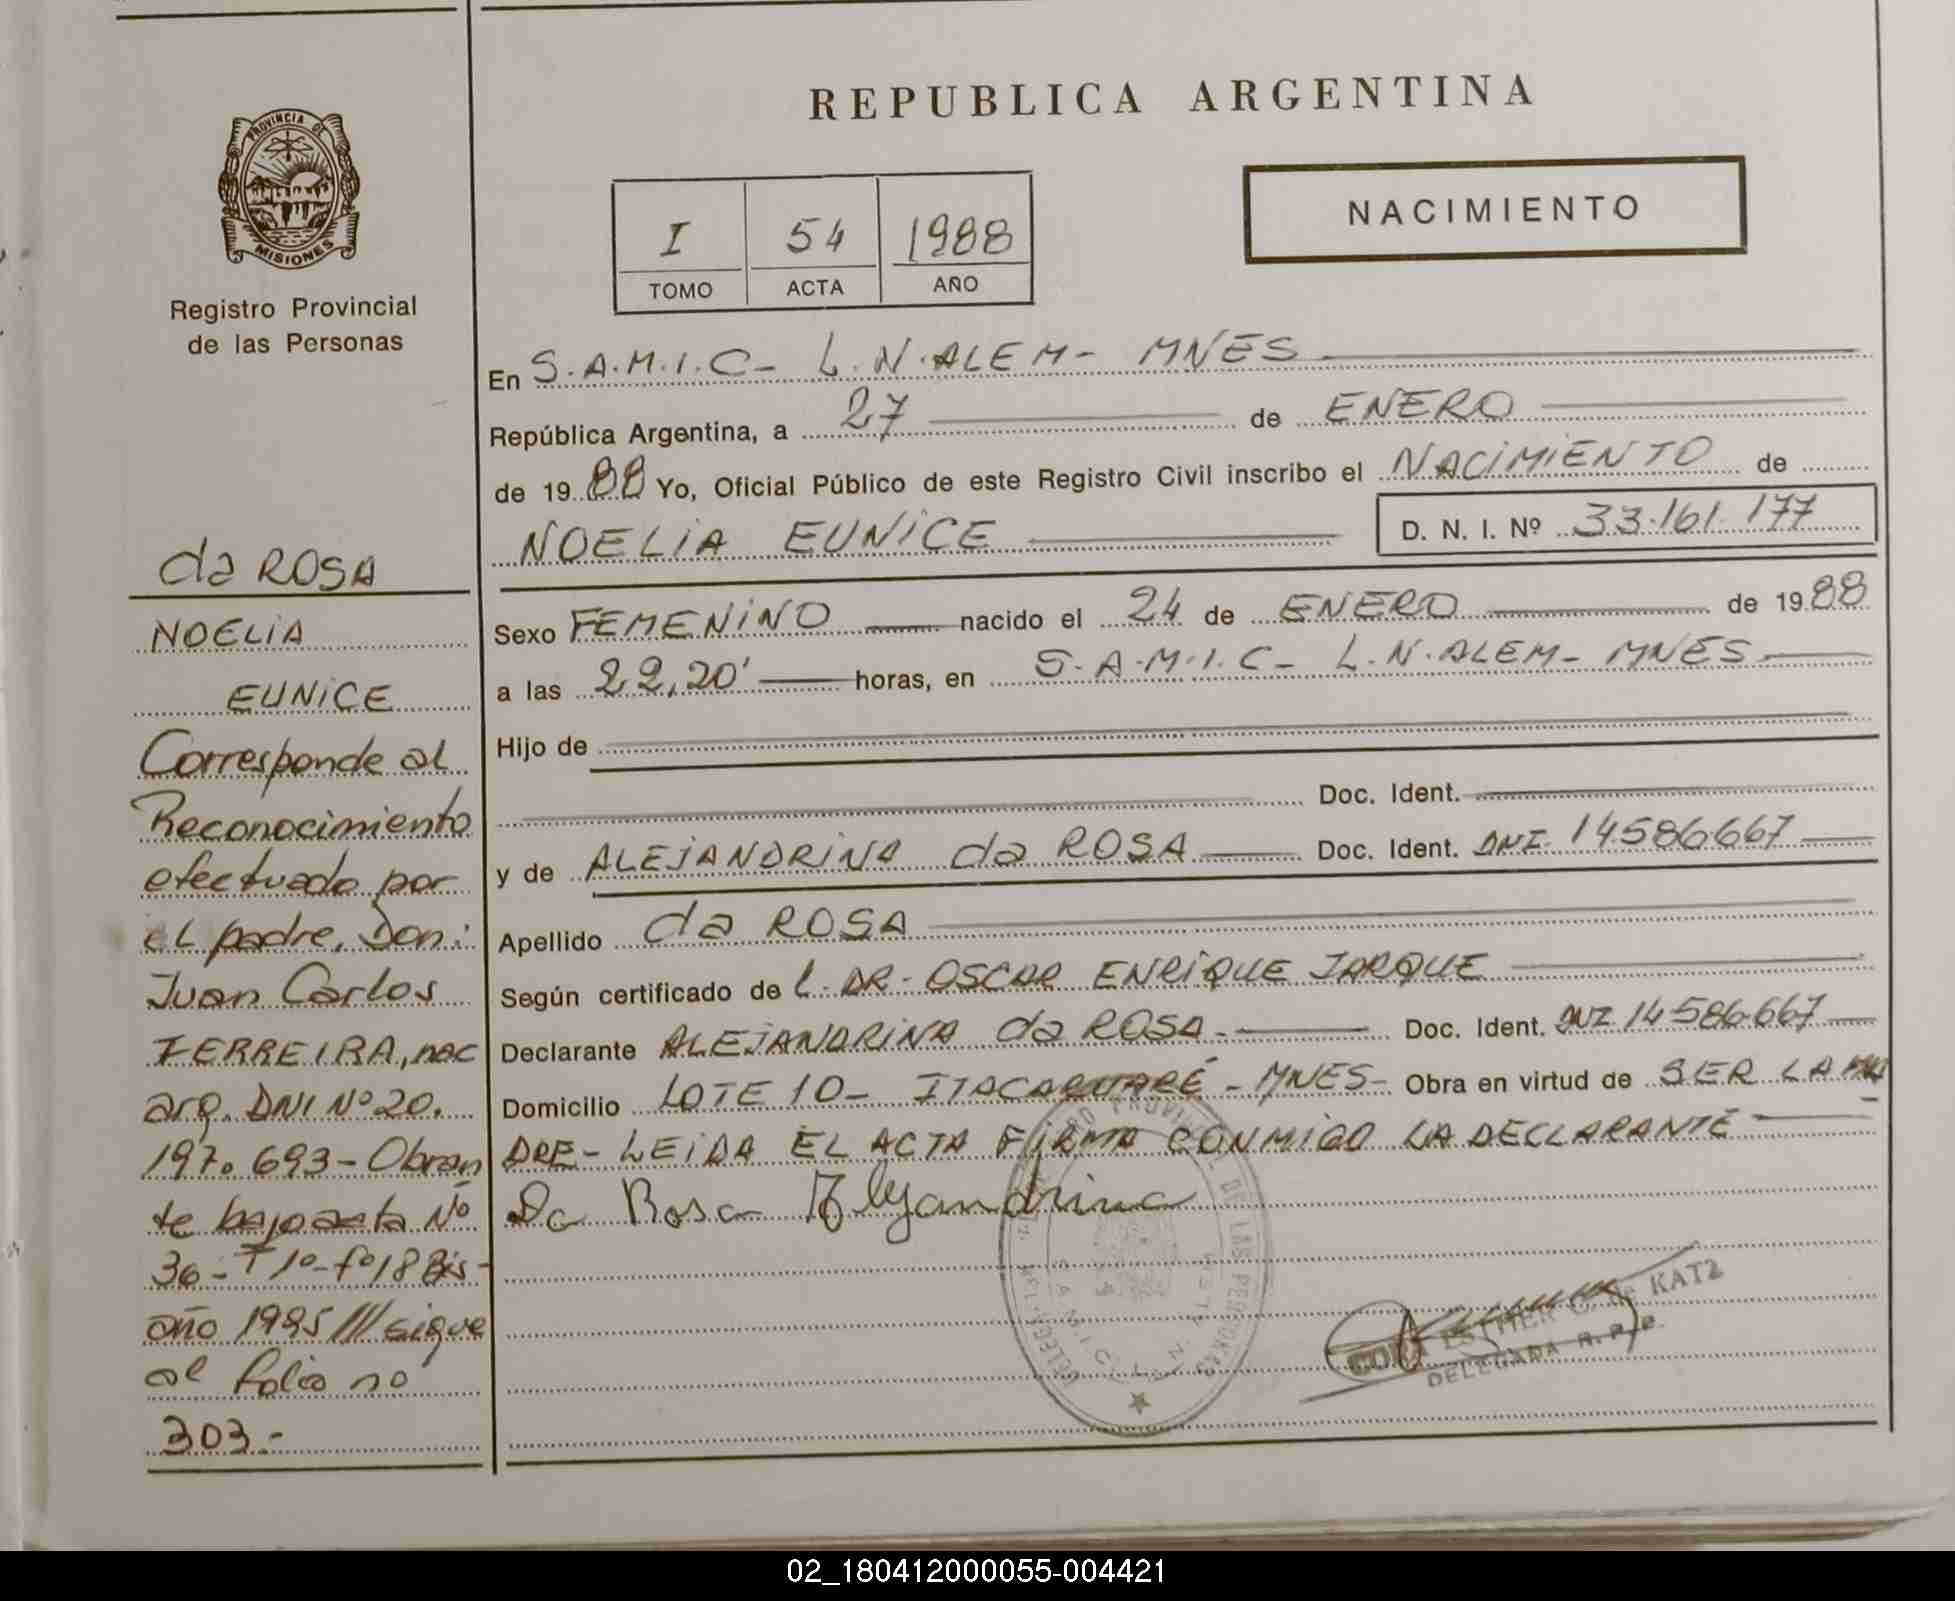 REPUBLICA ARGENTINA
PROVINCIA DE
MISIONES
Registro Provincial
de las Personas
I 54 1988
TOMO ACTA AÑO
NACIMIENTO
En S.A.M.I.C- L.N.ALEM- MNES
República Argentina, a 27 de ENERO
de 1988 Yo, Oficial Público de este Registro Civil inscribo el NACIMIENTO de
NOELIA EUNICE D. N. I. Nº 33.161.177
Sexo FEMENINO nacido el 24 de ENERO de 1988
a las 22,20' horas, en S.A.M.I.C- L.N.ALEM- MNES
Hijo de
Doc. Ident.
y de ALEJANDRINA da ROSA Doc. Ident. DNI. 14586667
Apellido da ROSA
Según certificado de L. DR. OSCAR ENRIQUE JARQUE
Declarante ALEJANDRINA da ROSA. Doc. Ident. DNI 14586667
Domicilio LOTE 10- ITACARUARÉ - MNES- Obra en virtud de SER LA MA
DRE- LEIDA EL ACTA FIRMA CONMIGO LA DECLARANTE
Da Rosa Alejandrina
ESTHER C. de KATZ
DELEGADA R. P. P.
da ROSA
NOELIA
EUNICE
Corresponde al
Reconocimiento
efectuado por
el padre, Don:
Juan Carlos
FERREIRA, nac
arg. DNI Nº 20.
197.693- Obran
te bajo acta Nº
36- T 1º- fº 18 Bis-
año 1995 /// sigue
al folio nº
303.-
02_180412000055-004421